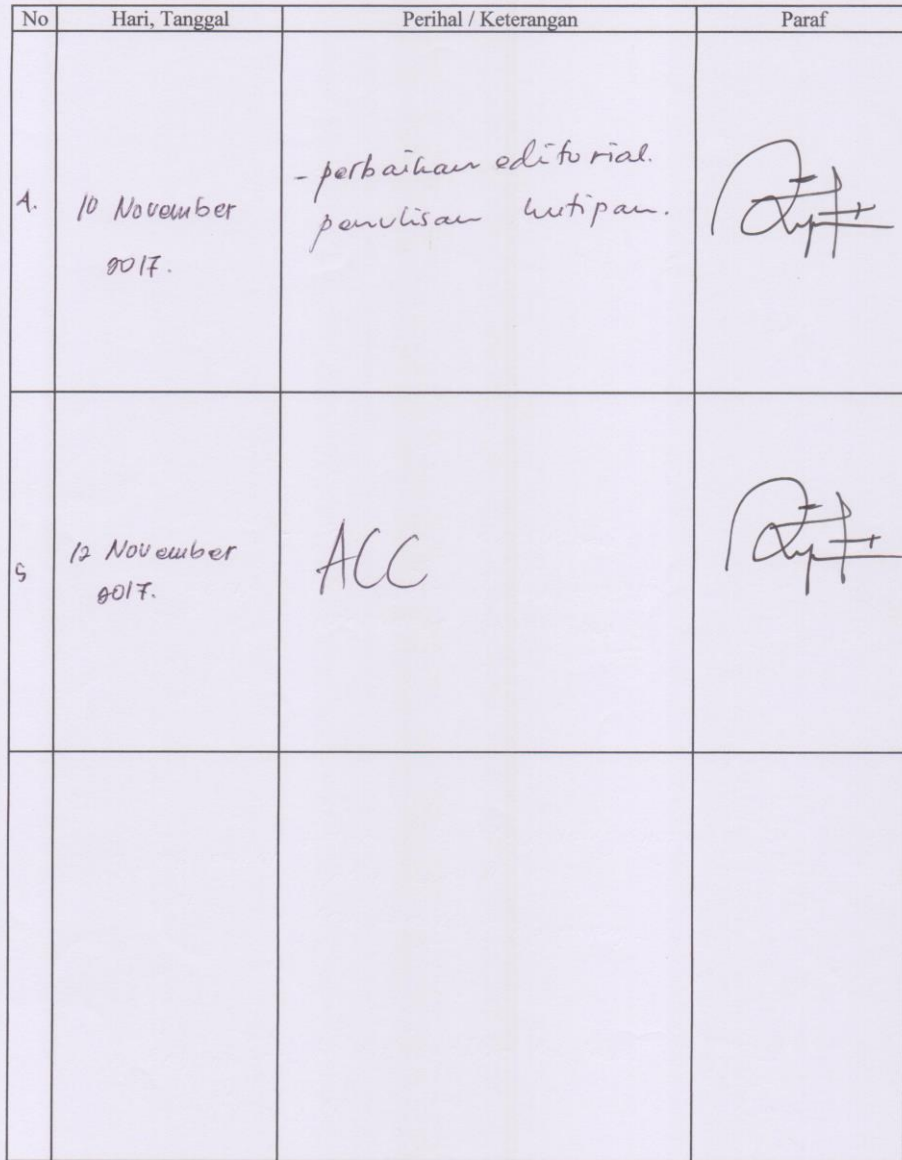 No Hari, Tanggal Perihal / Keterangan Paraf
4. 10 November 2017. - perbaikan editorial.
penulisan kutipan.
5 12 November 2017. ACC